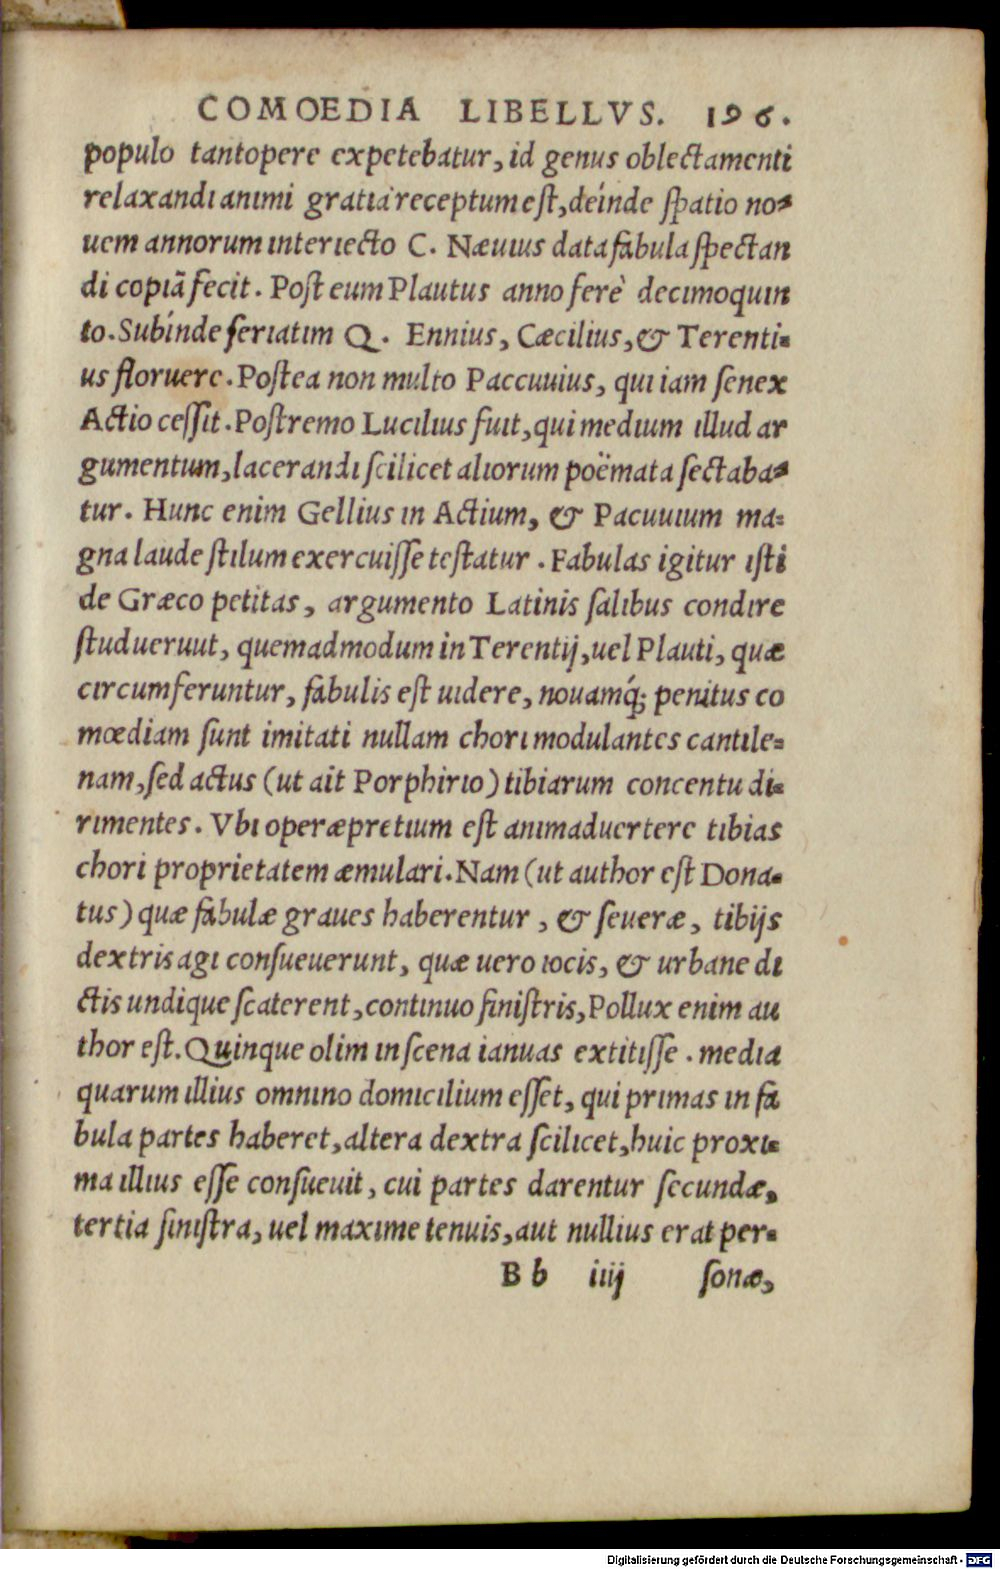 COMOEDIA LIBELLVS. 196.
populo tantopere expetebatur, id genus oblectamenti
relaxandi animi gratia receptum est, deínde spatio no-
uem annorum interiecto C. Næuius data fabula spectan
di copiã fecit. Post eum Plautus anno ferè decimoquin
to. Subínde seriatim Q. Ennius, Cæcilius, & Terenti-
us floruere. Postea non multo Paccuuius, qui iam senex
Actio cessit. Postremo Lucilius fuit, qui medium illud ar
gumentum, lacerandi scilicet aliorum poëmata sectaba-
tur. Hunc enim Gellius in Actium, & Pacuuium ma-
gna laude stilum exercuisse testatur. Fabulas igitur isti
de Græco petitas, argumento Latinis salibus condire
studueruut, quemadmodum in Terentij, uel Plauti, quæ
circumferuntur, fabulis est uidere, nouamq́; penitus co
mœdiam sunt imitati nullam chori modulantes cantile-
nam, sed actus (ut ait Porphirio) tibiarum concentu di-
rimentes. Vbi operæpretium est animaduertere tibias
chori proprietatem æmulari. Nam (ut author est Dona-
tus) quæ fabulæ graues haberentur, & seueræ, tibijs
dextris agi consueuerunt, quæ uero iocis, & urbane di
ctis undique scaterent, continuo sinistris, Pollux enim au
thor est. Quinque olim in scena ianuas extitisse. media
quarum illius omnino domicilium esset, qui primas in fa
bula partes haberet, altera dextra scilicet, huic proxi-
ma illius esse consueuit, cui partes darentur secundæ,
tertia sinistra, uel maxime tenuis, aut nullius erat per-
B b iiij sonæ,
Digitalisierung gefördert durch die Deutsche Forschungsgemeinschaft - DFG